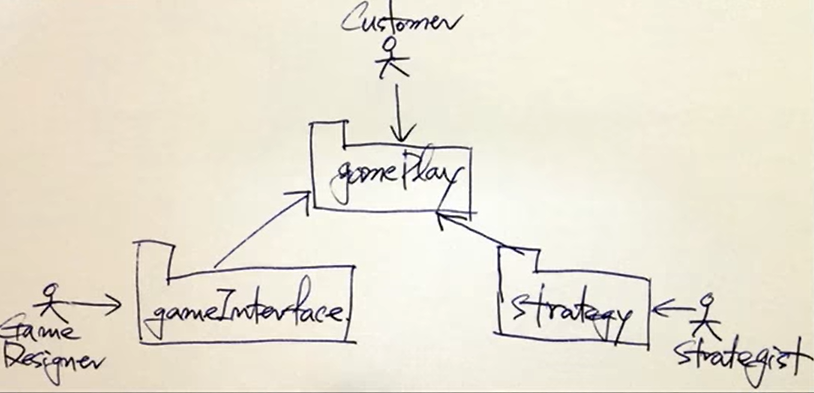 Customer
gamePlay
gameInterface
strategy
Game
Designer
strategist